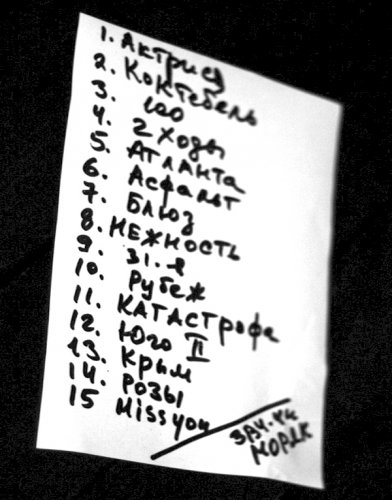 1. Актриса
2. Коктебель
3. 100
4. 2 Ходы
5. Атланта
6. Асфальт
7. Блюз
8. НЕЖНОСТЬ
9. 31.-я
10. Рубеж
11. КАТАСТрофа
12. Юго II
13. Крым
14. РОЗЫ
15 Missyou
МОРЯК